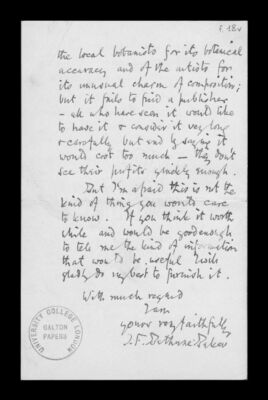 f. 18v
the local botanists for its botanical
accuracy and of the artists for
its unusual charm of composition;
but it fails to find a publisher
– all who have seen it would like
to have it & consider it very long
& carefully but end by saying it
would cost too much – they don't
see their profits quickly enough.
But I'm afraid this is not the
kind of thing you would care
to know. If you think it worth
while and would be good enough
to tell me the kind of information
that would be useful I will
gladly do my best to furnish it.
With much regard
I am
yours very faithfully
J. F. Bethune-Baker
UNIVERSITY COLLEGE LONDON
GALTON
PAPERS